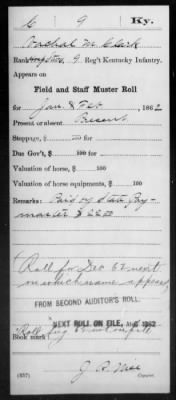 C 9 Ky.
M. Clark
Rank 9 Reg't Kentucky Infantry.
Appears on
Field and Staff Muster Roll
for Jan & Feb, 1862
Present or absent Present
Stoppage, $ 100 for
Due Gov't, $ 100 for
Valuation of horse, $ 100
Valuation of horse equipments, $ 100
Remarks: Paid by State Pay-
master $
Roll for Dec 62 next
on which name appears
FROM SECOND AUDITOR'S ROLL.
NEXT ROLL ON FILE, 1862
Book mark:
(857) Copyist.